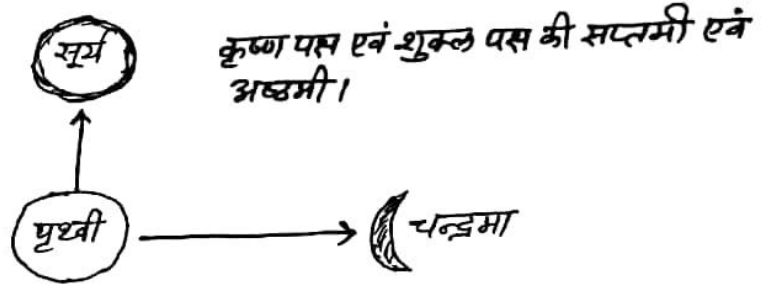 सूर्य
कृष्ण पक्ष एवं शुक्ल पक्ष की सप्तमी एवं
अष्ठमी।
पृथ्वी
चन्द्रमा